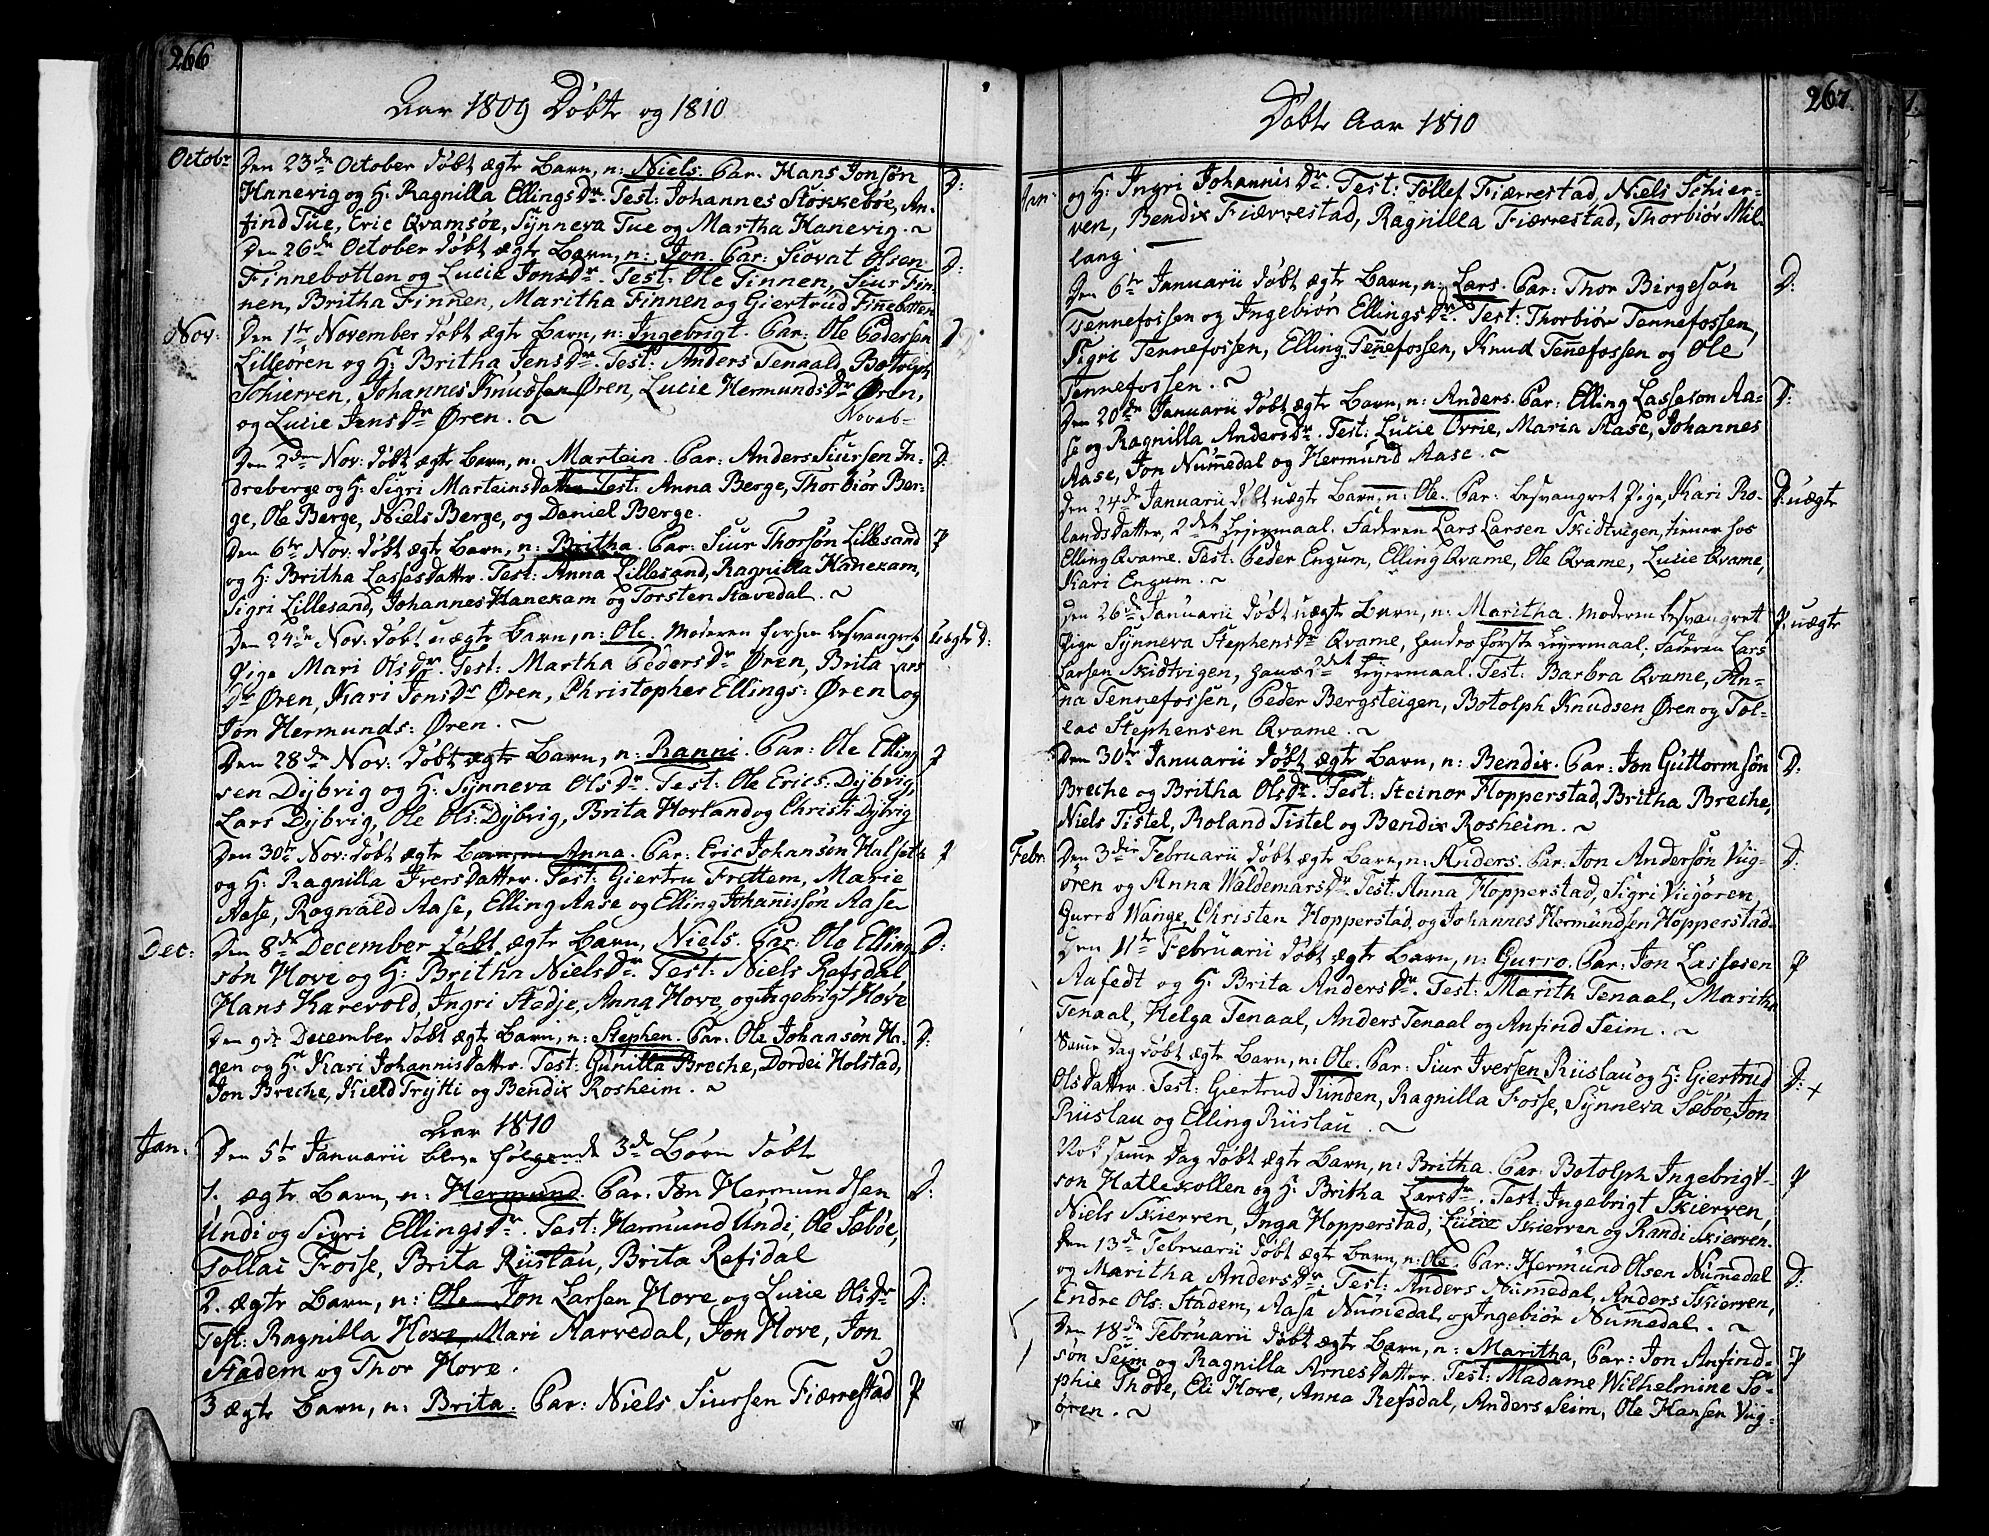 266
Aar 1809 Døbte og 1810
Octobr
Den 23de October døbt ægte Barn, n: Niels. Par: Hans Jonsøn
D:
Hanevig og H: Ragnilla EllingsDr. Test: Johannes Stokkebøe, An-
find Tue, Eric Qvamsøe, Synneva Tue og Martha Hanevig.
Den 26de October døbt ægte Barn, n: Jon. Par: Siovat Olsen
D:
Finnebotten og Lucie JonsDr. Test: Ole Finnen, Siur Fin-
nen, Britha Finnen, Maritha Finnen og Giertrud Finebotten
Nov:
Den 1te November døbt ægte Barn, n: Ingebrigt. Par: Ole Pedersen
D
Lilleøren og H: Britha JensDr. Test: Anders Tenaald, Botolph
Schierven, Johannes Knudsen Øren, Lucie HermundsDr Øren,
og Lucie JensDr Øren.
Noveb-
Den 2den Nov: døbt ægte Barn, n: Martein. Par: Anders Siursen In-
D:
dreberge og H: Sigri MarteinsDatter Test: Anna Berge, Thorbiør Ber-
ge, Ole Berge, Niels Berge, og Daniel Berge.
Den 6te Nov. døbt ægte Barn, n: Britha. Par: Siur Thorsøn Lillesand
P
og H: Britha LassesDatter. Test: Anna Lillesand, Ragnilla Hanekam,
Sigri Lillesand, Johannes Hanekam og Torsten Stavedal.
Den 24de Nov. døbt uægte Barn, n: Ole. Moderen besvangret
Uægte D:
Pige Mari OlsDr. Test: Martha PedersDr Øren, Brita Lars
Dr Øren, Kari JonsDr Øren, Christopher Ellings: Øren og
Jon Hermunds: Øren.
Den 28de Nov: døbt ægte Barn, n: Ranni. Par: Ole Elling
P
sen Dybvig og H: Synneva OlsDr. Test: Ole Erics: Dybvig,
Lars Dybvig, Ole Ols: Dybvig, Brita Horland og Christi Dybvig
Den 30te Nov: døbt ægte Barn, n: Anna. Par: Eric Johansøn Halset
P
og H: Ragnilla IversDatter. Test: Giertru Frettem, Marie
Aase, Rognald Aase, Elling Aase og Elling Johanissøn Aase
Dec:
Den 8de December døbt ægte Barn, Niels. Par: Ole Elling
D:
søn Hove og H: Britha NielsDr. Test: Niels Refsdal
Hans Harevold, Ingri Stedje, Anna Hove og Ingebrigt Hove
Den 9de December døbt ægte Barn, n: Stephen. Par: Ole Johansøn Ha-
D:
gen og H: Kari JohannisDatter. Test: Gunilla Breche, Dordei Holstad,
Jon Breche, Kield Trytti og Bendix Rosheim.
Aar 1810
Jan:
Den 5te Januarii bleve følgende 3de Børn døbt
1. ægte Barn, n: Hermund. Par: Jon Hermundsen
D:
Undi og Sigri EllingsDr. Test: Hermund Undi, Ole Sæbøe,
Tollac Fosse, Brita Rüslau, Brita Refsdal
2. ægte Barn, n: Ole Jon Larsen Hove og Lucie OlsDr
D:
Test: Ragnilla Hove, Mari Aarvedal, Jon Hove, Jon
Stadem og Thor Hove.
3 ægte Barn, n: Brita. Par: Niels Siursen Fiærrestad
P
267.
Døbte Aar 1810
Jan:
og H: Ingri JohannisDr. Test: Tollef Fiærrestad, Niels Schier-
ven, Bendix Fiærrestad, Ragnilla Fiærrestad, Thorbiør Mil-
lang
Den 6te Januarii døbt ægte Barn, n: Lars. Par: Thor Birgesøn
D:
Tennefossen og Ingebiør EllingsDr. Test: Thorbiør Tennefossen,
Sigri Tennefossen, Elling Tenefossen, Knud Tenefossen og Ole
Tennefossen.
Den 20de Januarii døbt ægte Barn, n: Anders. Par: Elling Lasseson Aa-
D:
se og Ragnilla AndersDr. Test: Lucie Orrie, Maria Aase, Johannes
Aase, Jon Numedal og Hermund Aase.
Den 24de Januarii døbt uægte Barn, n: Ole. Par: besvangret Pige, Kari Ro-
D. uægte
landsDatter, 2det Leiermaal. Faderen Lars Larsen Skidtvigen, tiener hos
Elling Qvame. Test: Peder Engum, Elling Qvame, Ole Qvame, Lucie Qvame,
Kari Engum.
Den 26de Januarii døbt uægte Barn, n: Maritha. Moderen besvangret
P. uægte
Pige Synneva StephensDr Qvame, hendes første Leyermaal. Faderen Lars
Larsen Skidtvigen, hans 2det Leyermaal. Test: Barbra Qvame, An-
na Tennefossen, Peder Bergsteigen, Botolph Knudsen Øren og Tol-
lac Stephensen Qvame.
Den 30te Januarii døbt ægte Barn, n: Bendix. Par: Jon Guttormsøn
D:
Breche og Britha OlsDr. Test: Steinor Hopperstad, Britha Breche,
Niels Tistel, Roland Tistel og Bendix Rosheim.
Febr:
Den 3die Februarii døbt ægte Barn, n: Anders. Par: Jon Andersøn Viig-
D:
øren og Anna WaldemarsDr. Test: Anna Hopperstad, Sigri Viigøren,
Gurro Wange, Christen Hopperstad, og Johannes Hermundsen Hopperstad.
Den 11te Februarii døbt ægte Barn, n: Gurro. Par: Jon Lassesen
P
Aafedt og H: Brita AndersDr. Test: Marith Tenaal, Maritha
Tenaal, Helga Tenaal, Anders Tenaal og Anfind Seim.
Same Dag døbt ægte Barn, n: Ole. Par: Siur Iversen Rüslau og H: Giertrud
D: +
OlsDatter. Test: Giertrud Tunden, Ragnilla Fosse, Synneva Sæbøe, Jon
Rüslau og Elling Rüslau.
Nok same Dag døbt ægte Barn, n: Britha. Par: Botolph Ingebrigt-
P
son Hatlekollen og H: Britha LarsDr. Test: Ingebrigt Skierven,
Niels Skierven, Inga Hopperstad, Lucie Skierven og Randi Skierven.
Den 13de Februarii døbt ægte Barn, n: Ole. Par: Hermund Olsen Numedal
D:
og Maritha AndersDr. Test: Anders Numedal, Anders Skierven,
Endre Ols: Stadem, Aase Numedal og Ingebiør Numedal.
Den 18de Februarii døbt ægte Barn, n: Maritha, Par: Jon Anfind-
P
søn Seim og Ragnilla ArnesDatter. Test: Madame Wilhelmine So-
phie Thode, Eli Hove, Anna Refsdal, Anders Seim, Ole Hansen Viig-
øren.